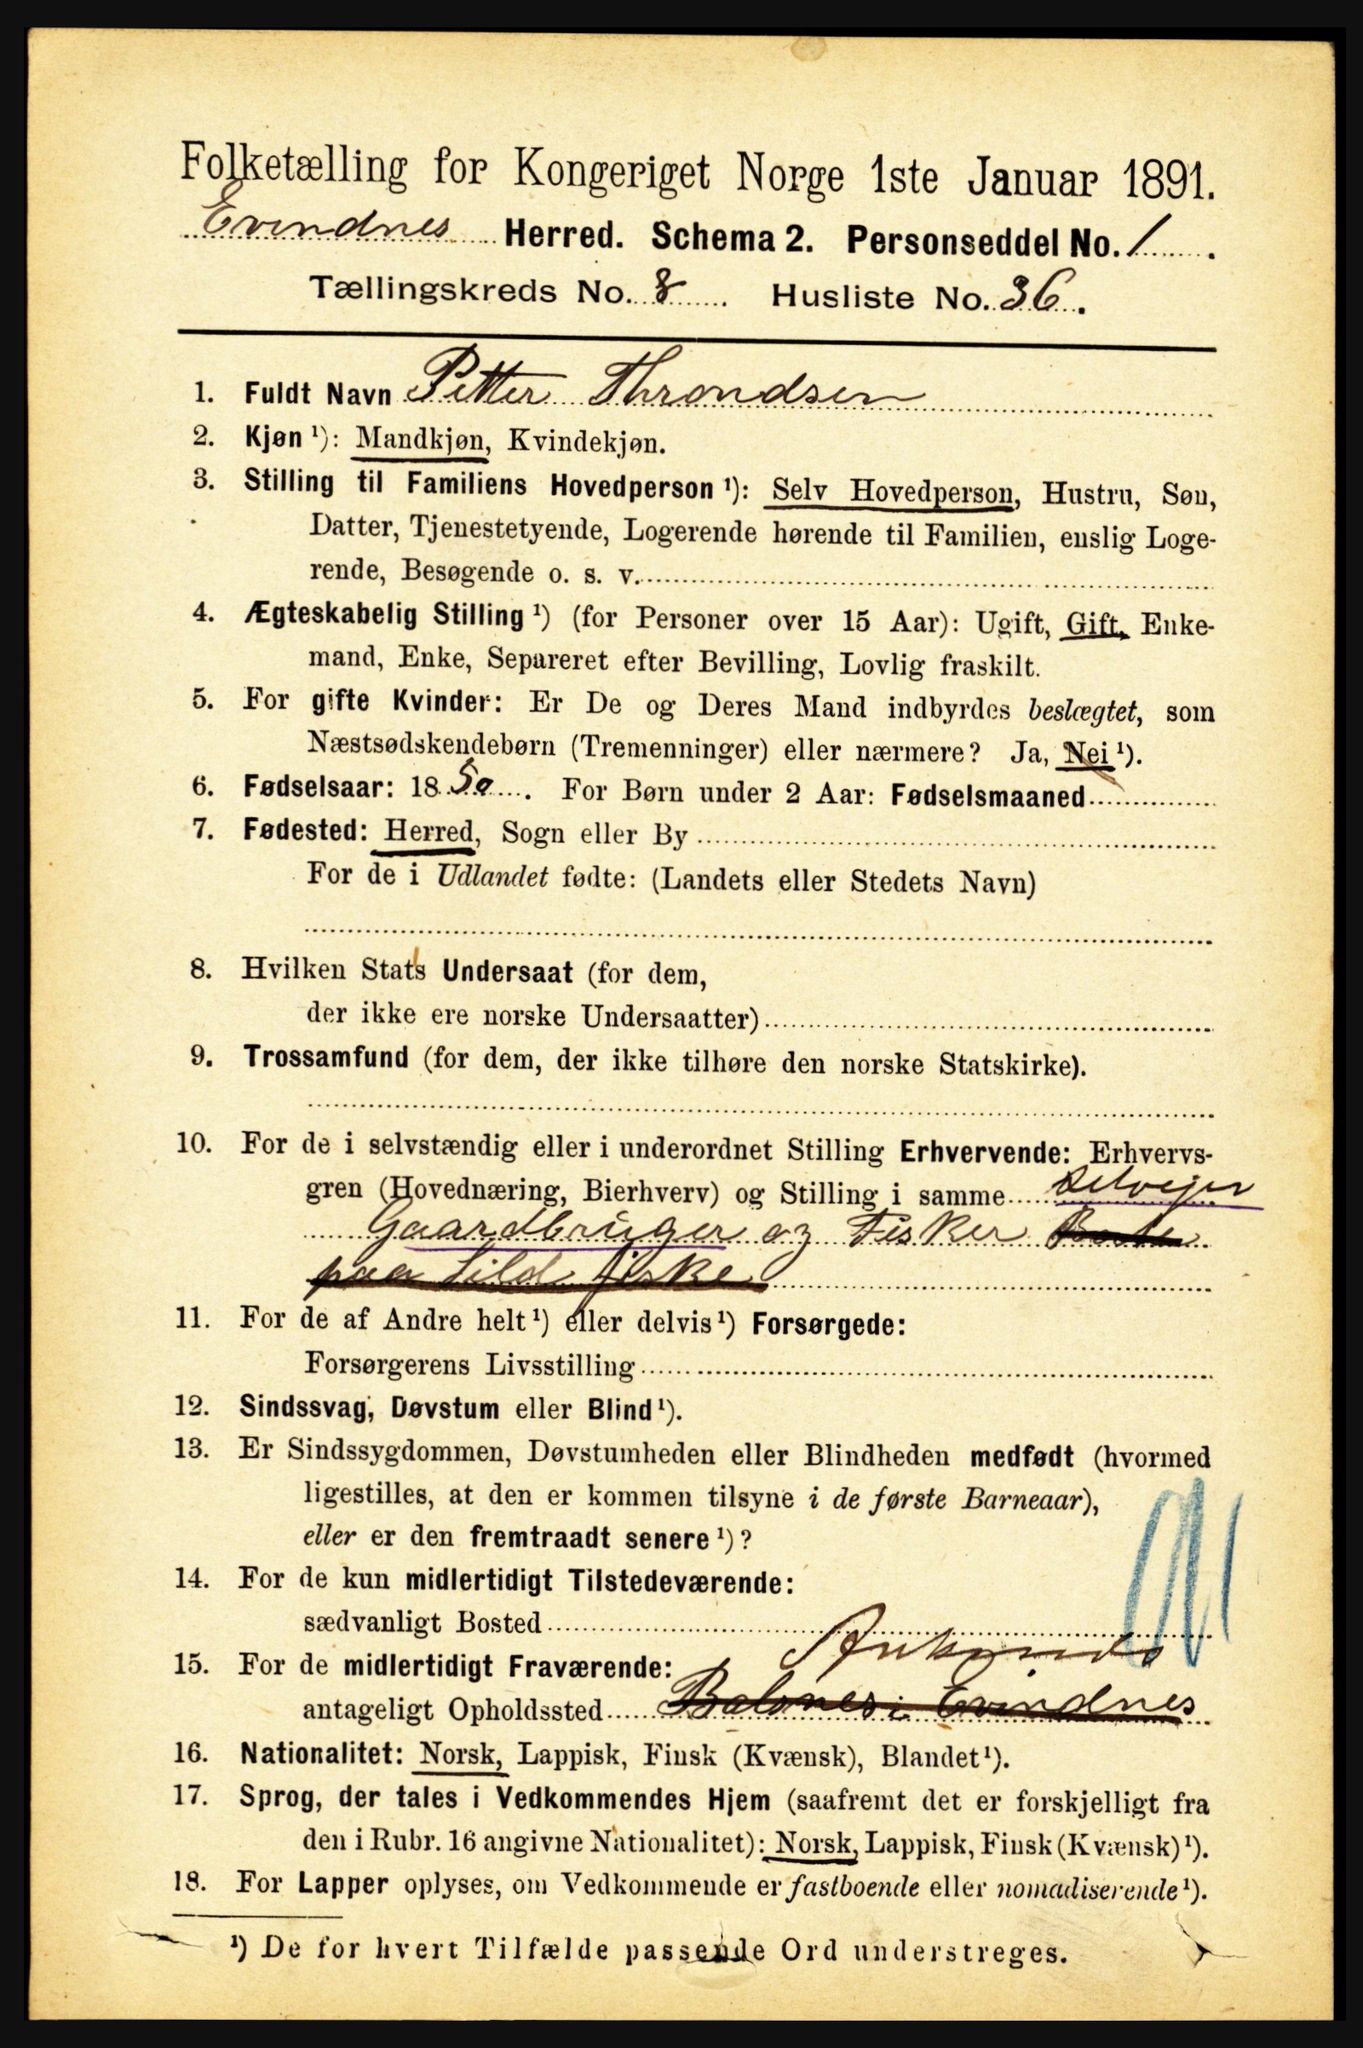 Folketælling for Kongeriget Norge 1ste Januar 1891.
Evindnes Herred. Schema 2. Personseddel No. 1.
Tællingskreds No. 8. Husliste No. 36.
1. Fuldt Navn Petter Throndsen
2. Kjøn ¹): Mandkjøn, Kvindekjøn.
3. Stilling til Familiens Hovedperson ¹): Selv Hovedperson, Hustru, Søn,
Datter, Tjenestetyende, Logerende hørende til Familien, enslig Loge-
rende, Besøgende o. s. v.
4. Ægteskabelig Stilling ¹) (for Personer over 15 Aar): Ugift, Gift, Enke-
mand, Enke, Separeret efter Bevilling, Lovlig fraskilt.
5. For gifte Kvinder: Er De og Deres Mand indbyrdes beslægtet, som
Næstsødskendebørn (Tremenninger) eller nærmere? Ja, Nei ¹).
6. Fødselsaar: 1850. For Børn under 2 Aar: Fødselsmaaned
7. Fødested: Herred, Sogn eller By
For de i Udlandet fødte: (Landets eller Stedets Navn)
8. Hvilken Stats Undersaat (for dem,
der ikke ere norske Undersaatter)
9. Trossamfund (for dem, der ikke tilhøre den norske Statskirke).
10. For de i selvstændig eller i underordnet Stilling Erhvervende: Erhvervs-
gren (Hovednæring, Bierhverv) og Stilling i samme Selveger
Gaardbruger og Fisker
paa Sild fiske
11. For de af Andre helt ¹) eller delvis ¹) Forsørgede:
Forsørgerens Livsstilling
12. Sindssvag, Døvstum eller Blind ¹).
13. Er Sindssygdommen, Døvstumheden eller Blindheden medfødt (hvormed
ligestilles, at den er kommen tilsyne i de første Barneaar),
eller er den fremtraadt senere ¹)?
14. For de kun midlertidigt Tilstedeværende:
sædvanligt Bosted
15. For de midlertidigt Fraværende:
antageligt Opholdssted i Evindnes
16. Nationalitet: Norsk, Lappisk, Finsk (Kvænsk), Blandet ¹).
17. Sprog, der tales i Vedkommendes Hjem (saafremt det er forskjelligt fra
den i Rubr. 16 angivne Nationalitet): Norsk, Lappisk, Finsk (Kvænsk) ¹).
18. For Lapper oplyses, om Vedkommende er fastboende eller nomadiserende ¹).
¹) De for hvert Tilfælde passende Ord understreges.